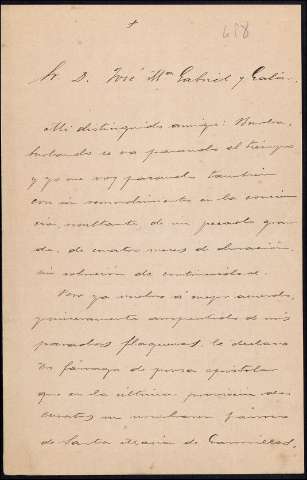 +
658
Sr. D. José Mª Gabriel y Galán.
Mi distinguido amigo: Burla
burlando se va pasando el tiempo
y yo me voy pasando también
con un remordimiento en la concien
cia, resultante de un pecado gran
de, de cuatro meses de duración,
sin solución de continuidad.
Pero ya vuelvo á mejor acuerdo,
y sinceramente arrepentido de mis
pasadas flaquezas, le declaro
fárrago de prosa epistolar
que en la última
de Santa María de